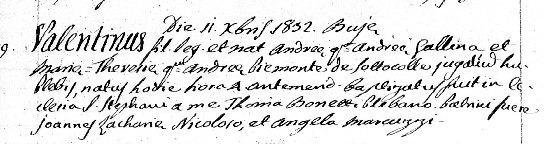 Die 11 Xbris 1832. Buja
9. Valentinus fil. leg. et nat Andreæ qm Andreæ Gallina et
Mariæ Theresiæ qm Andreæ Piemonte de Sottocolle jugaliu hu=
plebis, natus hodie hora 4 antemerid. baptizatus fuit in Ec=
clesia S. Stephani a me Thoma Bonetti Plebano. Patrini fuere
Joannes Zachariæ Nicoloso, et Angela Marcuzzi.